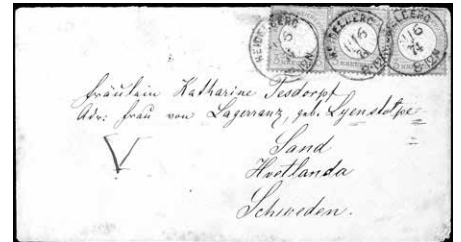 HEIDELBERG
HEIDELBERG
HEIDELBERG
Fräulein Katharine Tesdorpf
Adr: Frau von Lagerranz, geb. Lyenstolpe
Sand
Hvetlanda
Schweden.